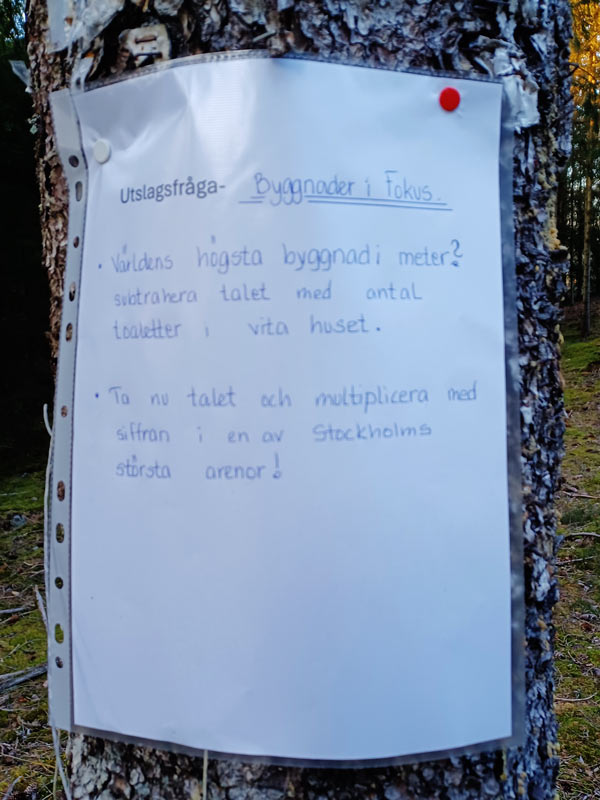 Utslagsfråga- Byggnader i Fokus.
• Världens högsta byggnad i meter?
subtrahera talet med antal
toaletter i vita huset.
• Ta nu talet och multiplicera med
siffran i en av Stockholms
största arenor!